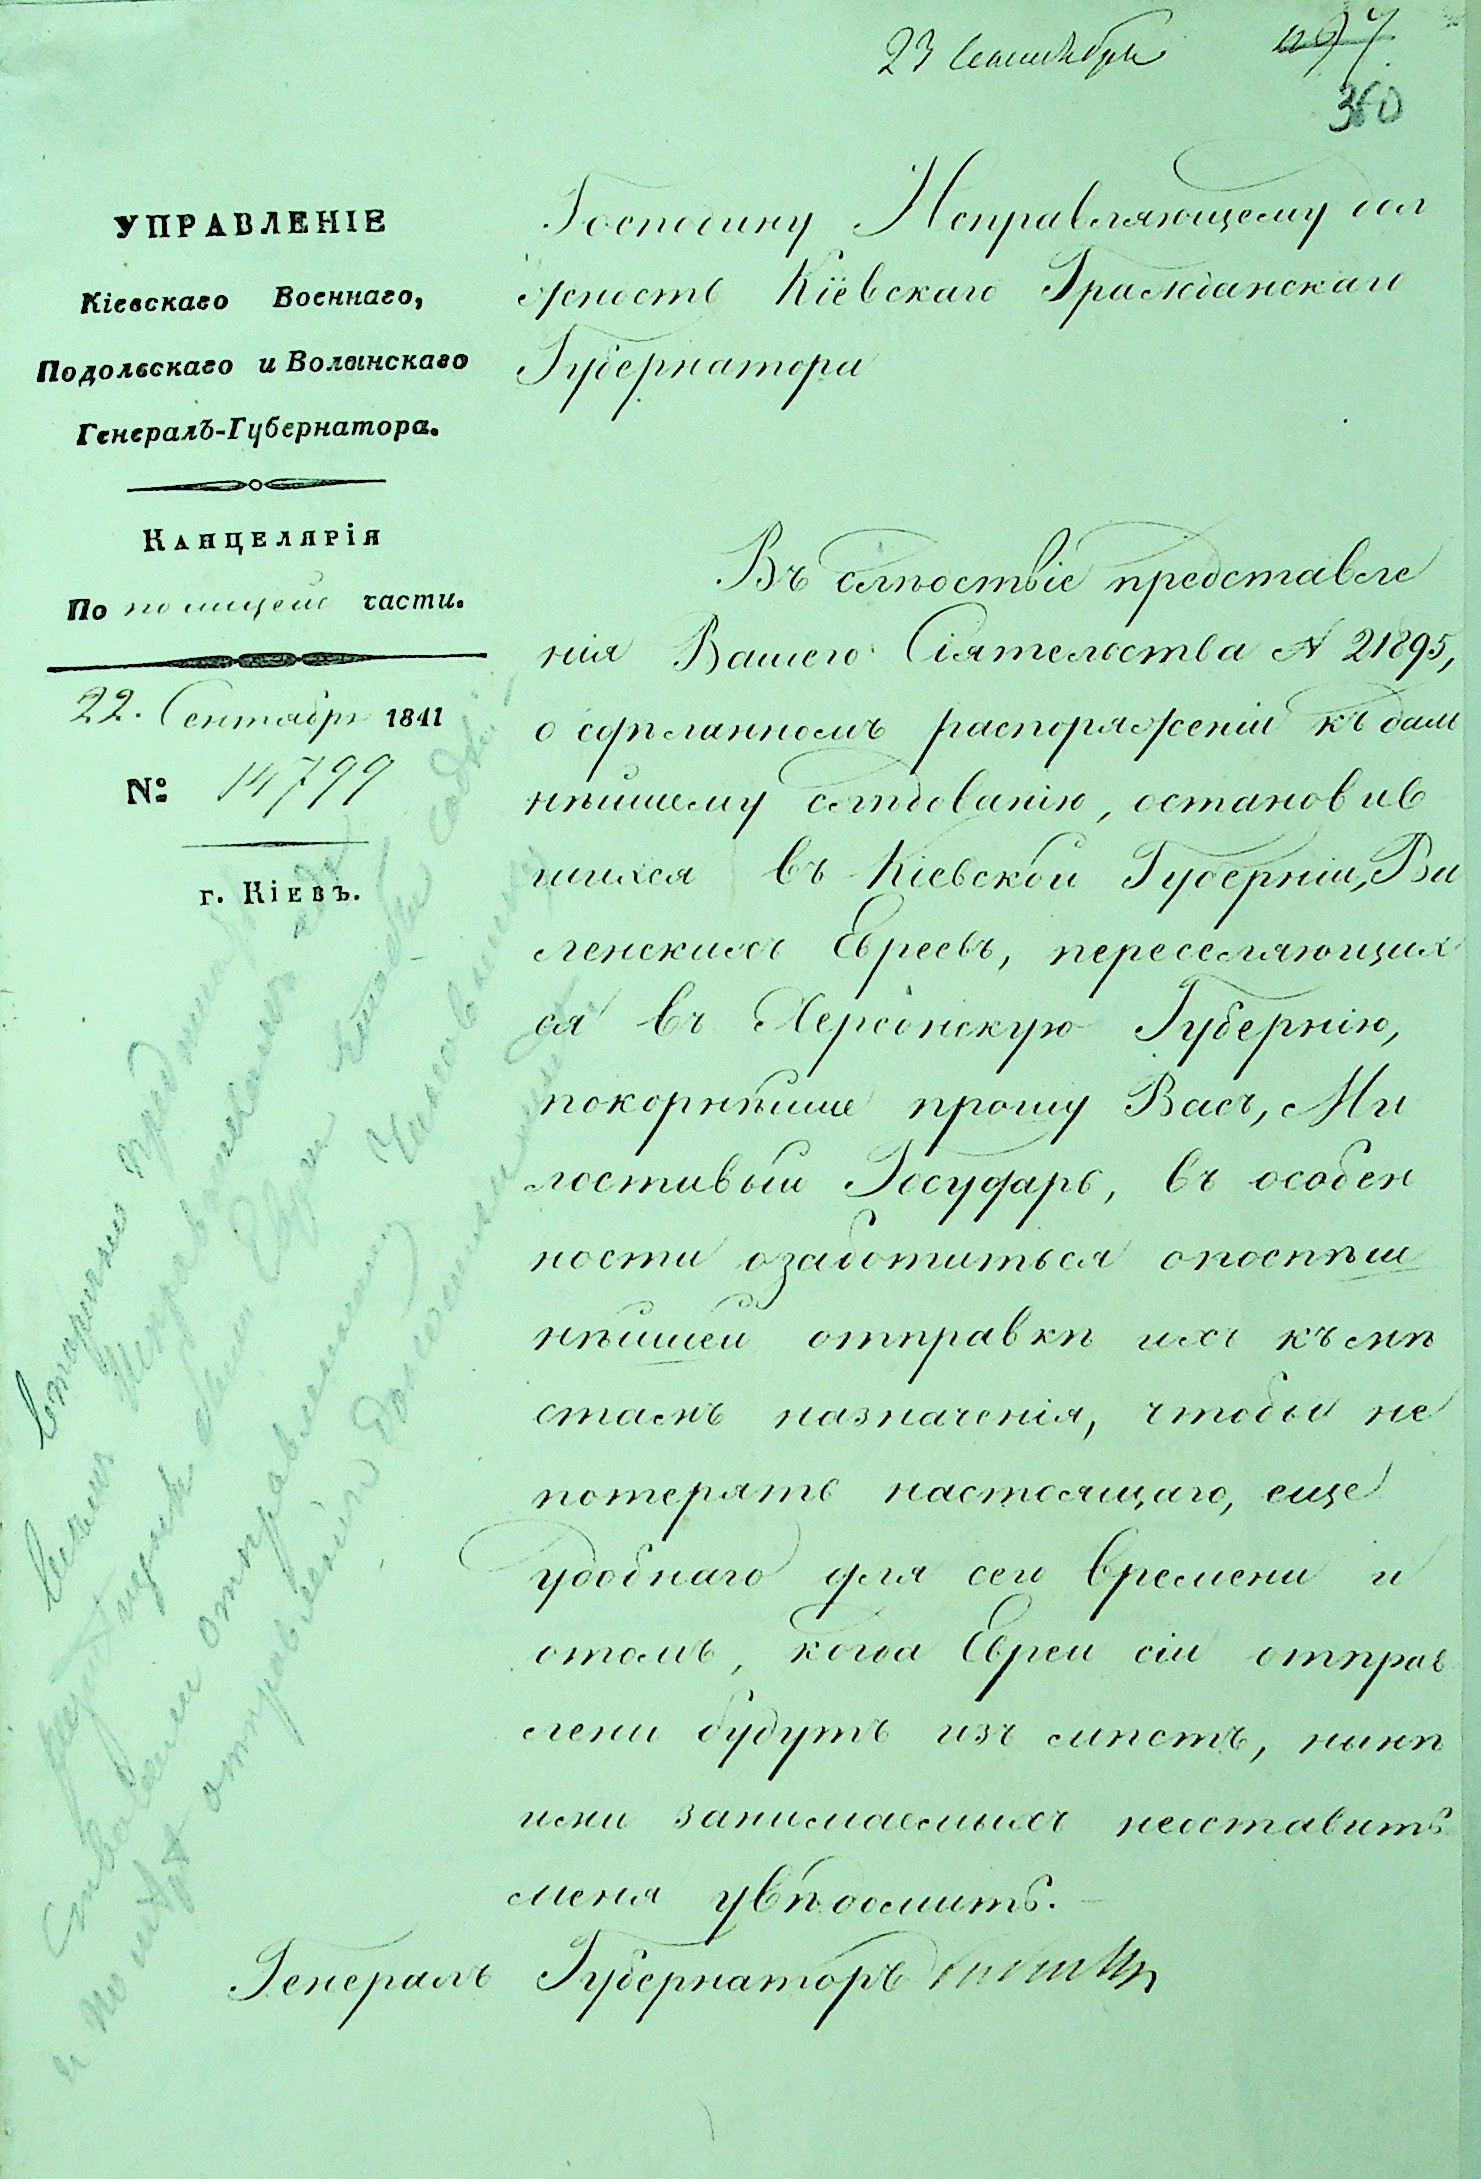 23 Сентября
360
УПРАВЛЕНІЕ
Кіевскаго Военнаго,
Подольскаго и Волынскаго
Генералъ-Губернатора.
Канцелярія
По полицей части.
22. Сентября 1841
№ 14799
г. Кіевъ.
Господину Исправляющему дол
жность Кіевскаго Гражданскаго
Губернатора
Въ слѣдствіе представле
нія Вашего Сіятельства № 21895,
о сдѣланномъ распоряженіи къ даль
нѣйшему слѣдованію, остановив
шихся въ Кіевской Губерніи, Ви
ленскихъ Евреевъ, переселяющих
ся въ Херсонскую Губернію,
покорнѣйше прошу Васъ, Ми
лостивый Государь, въ особен
ности озаботиться опоспѣш
нѣйшей отправкѣ ихъ къ мѣ
стамъ назначенія, чтобы не
потерять настоящаго, еще
удобнаго для сего времени и
отомъ, когда Евреи сіи отправ
лены будутъ изъ мѣстъ, нынѣ
ими занимаемыхъ неоставить
меня увѣдомить.
Генералъ Губернаторъ Бибиковъ
вторично предписать
всѣмъ Исправникамъ
Евреи
отправлены
Чиновнику
и по отправленіи